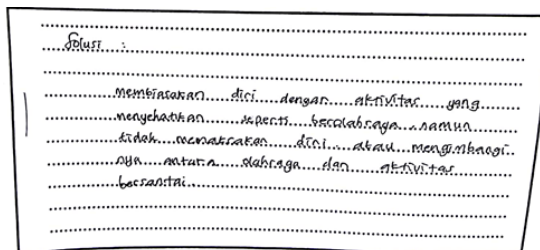 Solusi :
membiasakan diri dengan aktivitas yang
menyehatkan seperti berolahraga, namun
tidak memaksakan diri atau mengimbangi
nya antara olahraga dan aktivitas
bersantai.